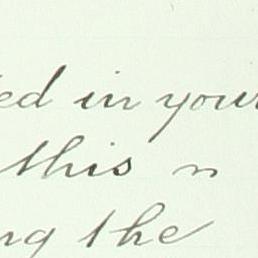 ed in your
this n
ng the